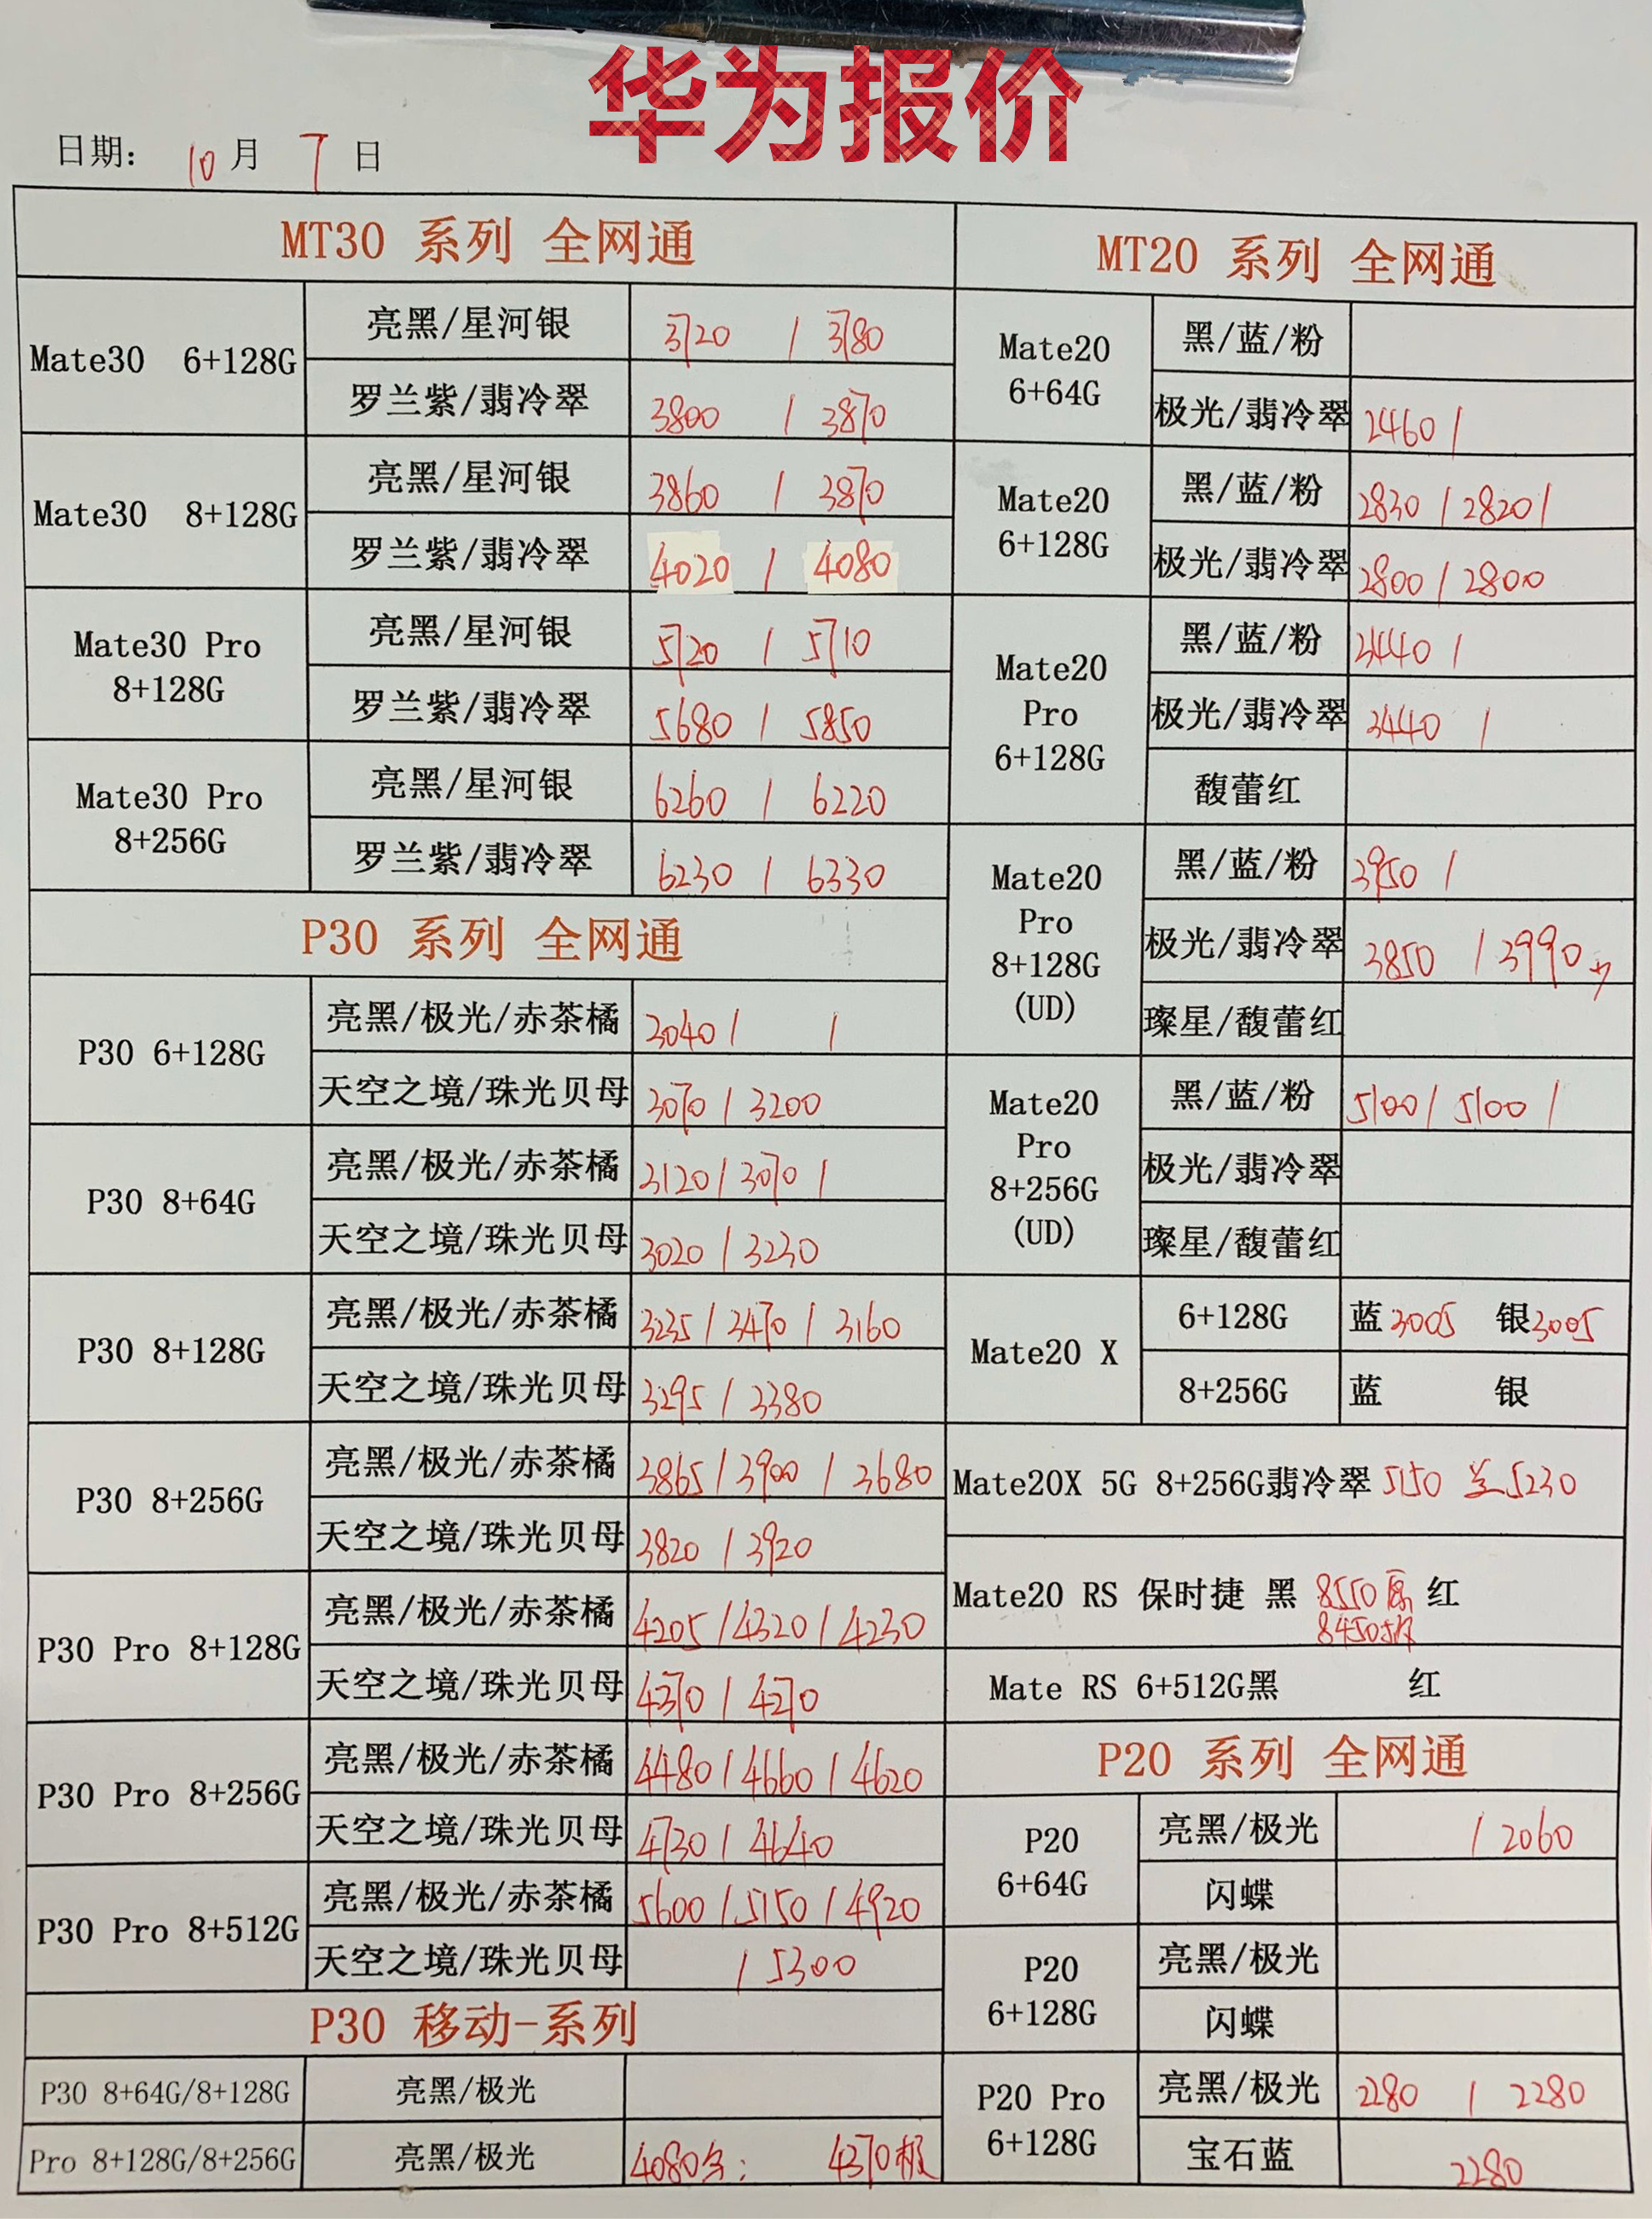 华为报价
日期： 10 月 7 日
MT30 系列 全网通
Mate30 6+128G
亮黑/星河银 3720 / 3780
罗兰紫/翡冷翠 3800 / 3870
Mate30 8+128G
亮黑/星河银 3860 / 3870
罗兰紫/翡冷翠 4020 / 4080
Mate30 Pro
8+128G
亮黑/星河银 5720 / 5710
罗兰紫/翡冷翠 5680 / 5850
Mate30 Pro
8+256G
亮黑/星河银 6260 / 6220
罗兰紫/翡冷翠 6230 / 6330
P30 系列 全网通
P30 6+128G
亮黑/极光/赤茶橘 3040 / /
天空之境/珠光贝母 3070 / 3200
P30 8+64G
亮黑/极光/赤茶橘 3120 / 3070 /
天空之境/珠光贝母 3020 / 3230
P30 8+128G
亮黑/极光/赤茶橘 3235 / 3470 / 3160
天空之境/珠光贝母 3295 / 3380
P30 8+256G
亮黑/极光/赤茶橘 3865 / 3900 / 3680
天空之境/珠光贝母 3820 / 3920
P30 Pro 8+128G
亮黑/极光/赤茶橘 4205 / 4320 / 4230
天空之境/珠光贝母 4370 / 4270
P30 Pro 8+256G
亮黑/极光/赤茶橘 4480 / 4660 / 4620
天空之境/珠光贝母 4730 / 4640
P30 Pro 8+512G
亮黑/极光/赤茶橘 5600 / 5150 / 4920
天空之境/珠光贝母 / 5300
P30 移动-系列
P30 8+64G/8+128G 亮黑/极光
Pro 8+128G/8+256G 亮黑/极光 4080 4370极
MT20 系列 全网通
Mate20
6+64G
黑/蓝/粉
极光/翡冷翠 2460 /
Mate20
6+128G
黑/蓝/粉 2830 / 2820 /
极光/翡冷翠 2800 / 2800
Mate20
Pro
6+128G
黑/蓝/粉 3440 /
极光/翡冷翠 3440 /
馥蕾红
Mate20
Pro
8+128G
(UD)
黑/蓝/粉 3950 /
极光/翡冷翠 3850 / 3990
璨星/馥蕾红
Mate20
Pro
8+256G
(UD)
黑/蓝/粉 5100 / 5100 /
极光/翡冷翠
璨星/馥蕾红
Mate20 X
6+128G 蓝 3005 银 3005
8+256G 蓝 银
Mate20X 5G 8+256G翡冷翠 5150 5230
Mate20 RS 保时捷 黑 8550原 红
8450
Mate RS 6+512G黑 红
P20 系列 全网通
P20
6+64G
亮黑/极光 / 2060
闪蝶
P20
6+128G
亮黑/极光
闪蝶
P20 Pro
6+128G
亮黑/极光 2280 / 2280
宝石蓝 2280